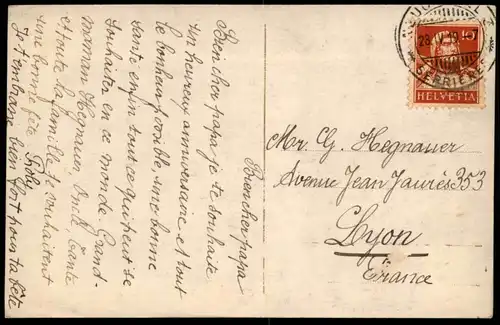 Bien cher papa
Bien cher papa je te souhaite
un heureux anniversaire et tout
le bonheur possible, une bonne
santé enfin tout ce qui peut se
souhaiter en ce monde Grand-
maman Hegnauer, Oncle, Tante
et toute la famille te souhaitent
une bonne fête
Je t'embrasse bien fort
Mr. G. Hegnauer
Avenue Jean Jaurès 353
Lyon
France
10
HELVETIA
SERRIERES